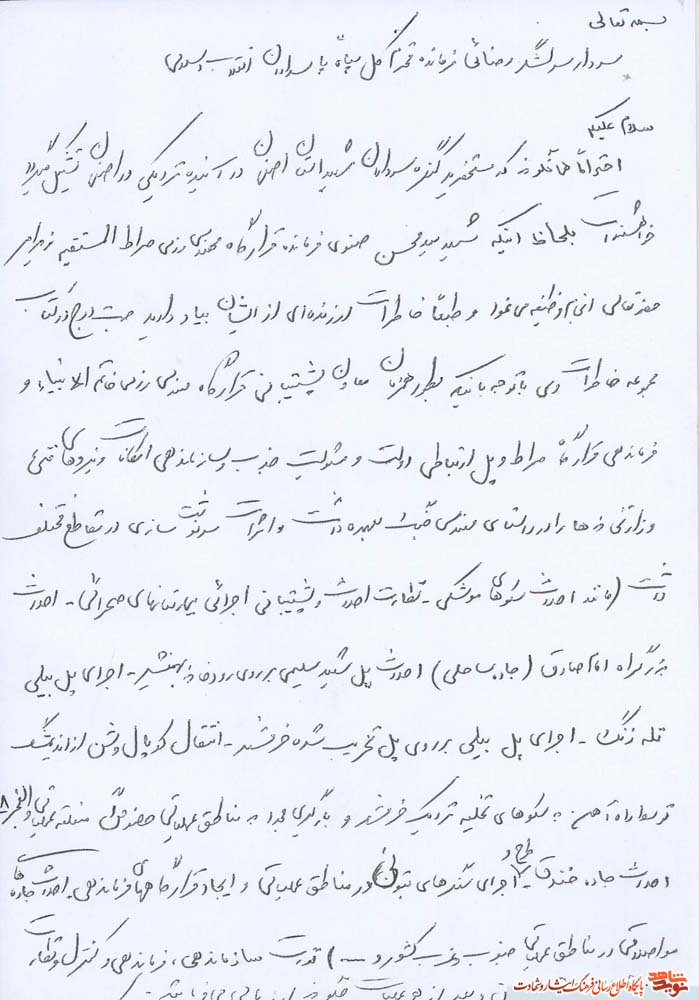 بسمه تعالی
سردار سرلشگر رضائی فرمانده محترم کل سپاه پاسداران انقلاب اسلامی
سلام علیکم
احتراماً همانطور که مستحضرید کنگره سرداران شهید استان اصفهان در آینده نزدیکی در اصفهان تشکیل میگردد
خواهشمند است بلحاظ اینکه شهید سید محسن صفوی فرمانده قرارگاه مهندسی رزمی صراط المستقیم زیر نظر
حضرتعالی انجام وظیفه می نمود و طبعاً خاطرات ارزنده ای از ایشان بیاد دارید جهت درج در کتاب
مجموعه خاطرات وی با توجه باینکه بطور همزمان معاون پشتیبانی قرارگاه مهندسی رزمی خاتم الانبیاء و
فرماندهی قرارگاه صراط و پل ارتباطی دولت و مسئولیت جذب و سازماندهی امکانات و نیروهای فنی
وزارتخانه ها را در راستای مهندسی جنگ بعهده داشت و اثرات سرنوشت سازی در مقاطع مختلف
داشت (مانند احداث سکوهای موشکی - نظارت احداث و پشتیبانی اجرائی بیمارستانهای صحرائی - احداث
بزرگراه امام صادق (جاده ساحلی) احداث پل شهید سلیمی بر روی رودخانه بهمنشیر - اجرای پل بیلی
قله زنگ - اجرای پل بیلی بر روی پل تخریب شده خرمشهر - انتقال کوپال و شن از اندیمشک
توسط راه آهن به سکوهای تخلیه نزدیک خرمشهر و بارگیری مجدد به مناطق عملیاتی خصوصاً منطقه عملیاتی والفجر ۸
احداث جاده خندق - طرح و اجرای سنگرهای بتونی در مناطق عملیاتی و ایجاد قرارگاههای فرماندهی - احداث جاده های
مواصلاتی در مناطق عملیاتی جنوب و غرب کشور و ....) قدرت سازماندهی، فرماندهی و کنترل و نظارت
نوید شاهد
پایگاه اطلاع رسانی فرهنگ ایثار و شهادت